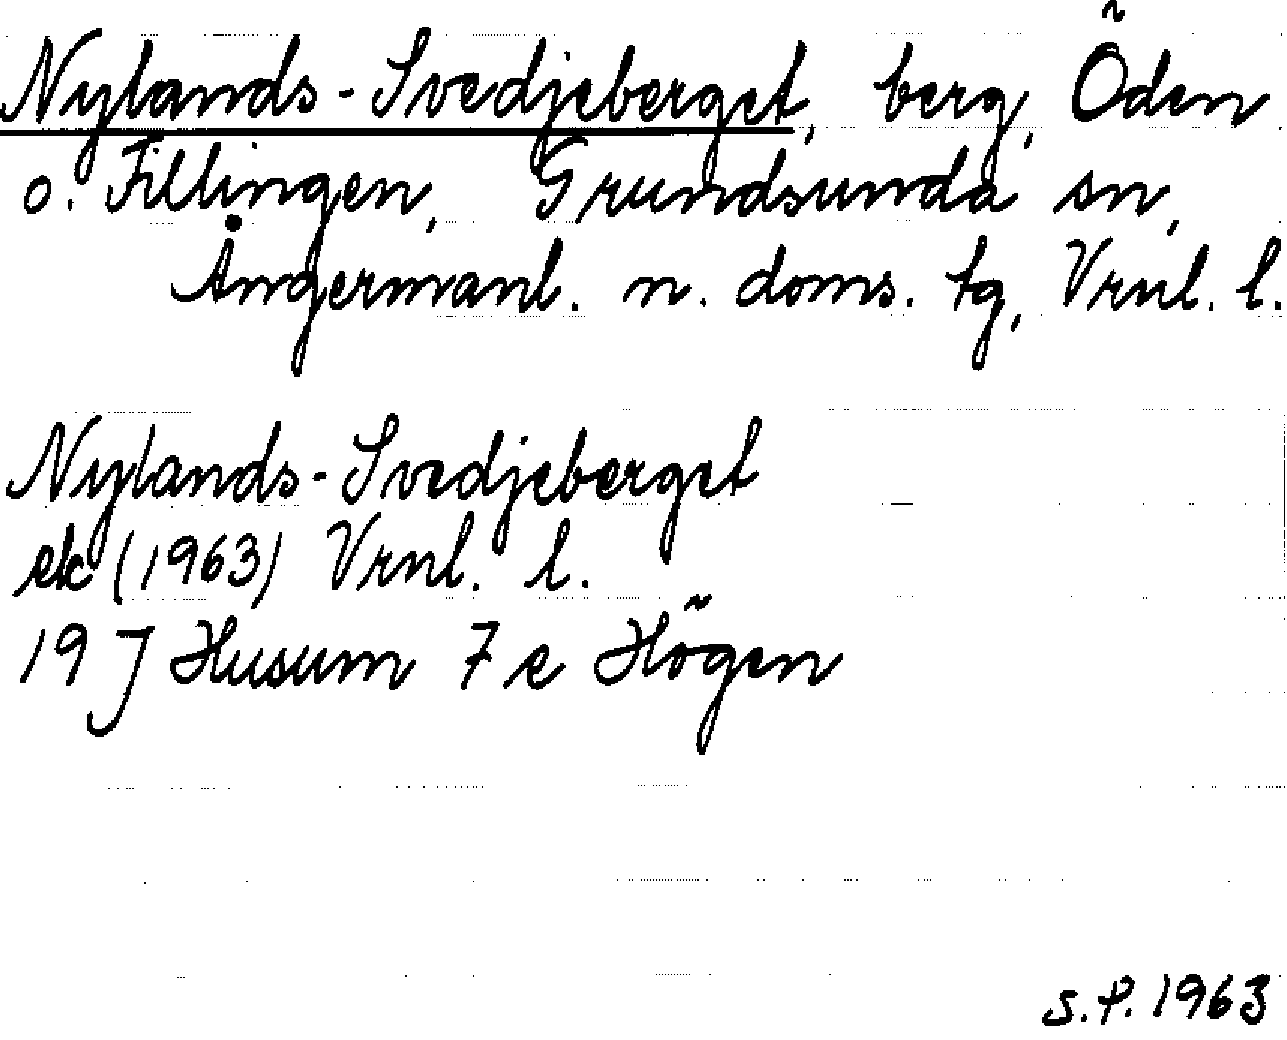 Nylands-Svedjeberget, berg, Öden
o. Fillingen, Grundsunda sn,
Ångermanl. n. doms. tg, Vrnl. l.
Nylands-Svedjeberget
ek (1963) Vrnl. l.
19 J Husum 7 e Högen
S.P. 1963